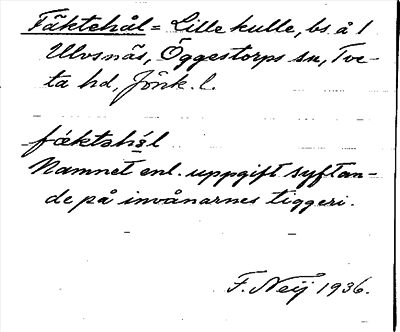 Fäktehål = Lille kulle, bs å 1
Ulvsnäs, Öggestorps sn, Tve-
ta hd, Jönk. l.
fäktəhål
Namnet enl. uppgift syftan-
de på invånarnes tiggeri.
F. Neij 1936.